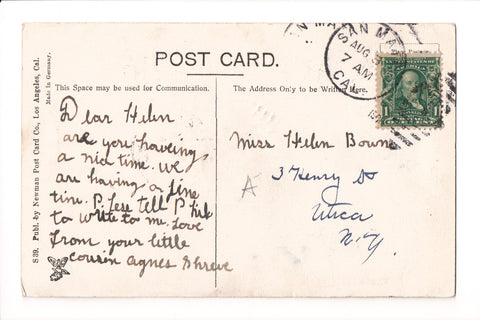 SAN MA
AUG
7 AM
CAL.
POST CARD.
This Space may be used for Communication.
The Address Only to be Written Here.
S 39. Publ. by Newman Post Card Co., Los Angeles, Cal.
Made in Germany.
Dear Helen
are you haveing
a nice time. we
are having a fine
time. P. lese tell P
to write to me. Love
from your little
cousin agnes Shreve
Miss Helen Bowne
3 Henry St
Utica
N.Y.
A